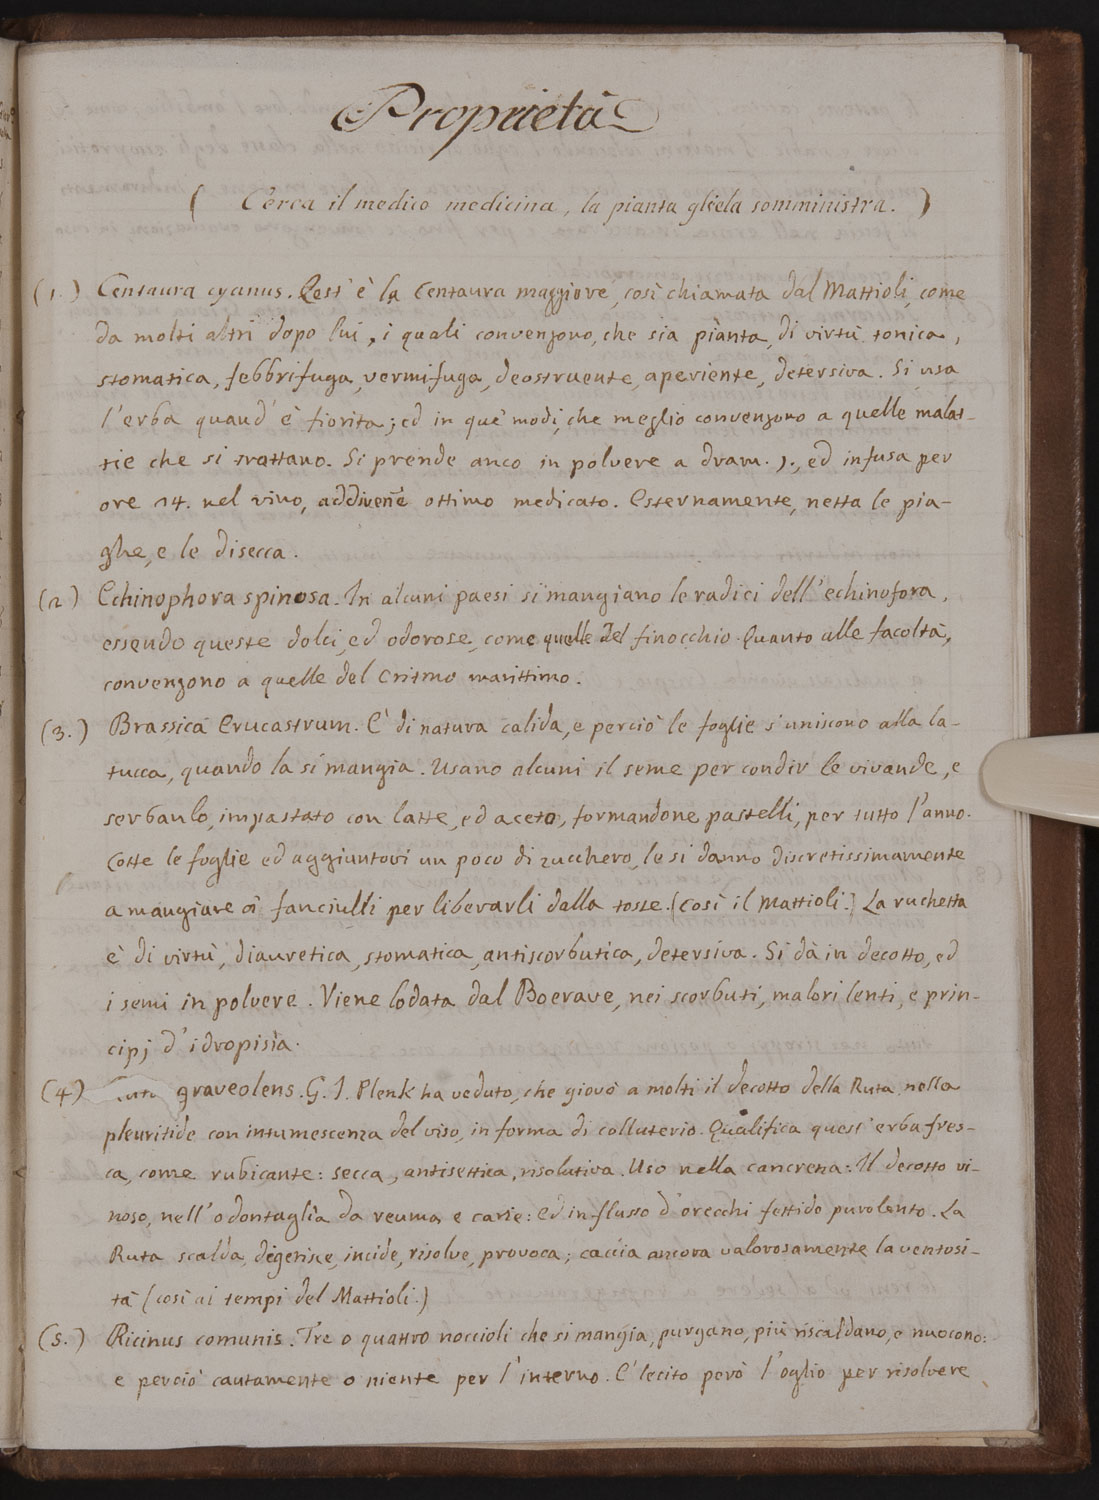 Proprietà
( Cerca il medico medicina, la pianta gliela somministra. )
(1.) Centaura cyanus. Quest' è la Centaura maggiore, così chiamata dal Mattioli, come
da molti altri dopo lui, i quali convengono, che sia pianta, di virtù tonica,
stomatica, febbrifuga, vermifuga, deostruente, aperiente, detersiva. Si usa
l'erba quand' è fiorita; ed in que' modi, che meglio convengono a quelle malat-
tie che si trattano. Si prende anco in polvere a dram. 1., ed infusa per
ore 14. nel vino, addivene ottimo medicato. Esternamente, netta le pia-
ghe, e le disecca.
(2) Echinophora spinosa. In alcuni paesi si mangiano le radici dell' echinofora,
essendo queste dolci, ed odorose, come quelle del finocchio. Quanto alle facoltà,
convengono a quelle del Critmo marittimo.
(3.) Brassica Erucastrum. E' di natura calida, e perciò le foglie s'uniscono alla la-
tucca, quando la si mangia. Usano alcuni il seme per condir le vivande, e
serbanlo, impastato con latte, ed aceto, formandone pastelli, per tutto l'anno.
Cotte le foglie ed aggiuntovi un poco di zucchero, le si danno discretissimamente
a mangiare ai fanciulli per liberarli dalla tosse. (Così il Mattioli.) La ruchetta
è di virtù, diauretica, stomatica, antiscorbutica, detersiva. Si dà in decotto, ed
i semi in polvere. Viene lodata dal Boerave, nei scorbuti, malori lenti, e prin-
cipj d'idropisia.
(4) graveolens. G. I. Plenk ha veduto, che giovò a molti il decotto della Ruta nella
pleuritide con intumescenza del viso, in forma di colluterio. Qualifica quest' erba fres-
ca, come rubicante: secca, antisettica, risolutiva. Uso nella cancrena: Il decotto vi-
noso, nell' odontaglia da reuma e carie: ed influsso d'orecchi fettido purolento. La
Ruta scalda, digerisce, incide, risolve, provoca; caccia ancora valorosamente la ventosi-
tà (così ai tempi del Mattioli.)
(5.) Ricinus comunis. Tre o quattro noccioli che si mangia, purgano, più riscaldano, e nuocono:
e perciò cautamente o niente per l'interno. E' lecito però l'oglio per risolvere